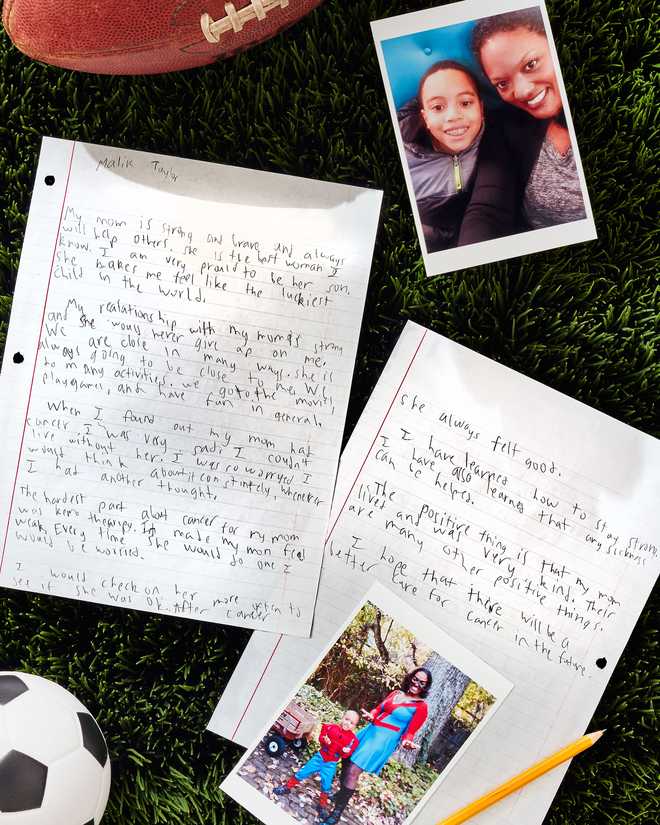 Malik Taylor
My mom is strong and brave and always
will help others. she is the best woman I
know. I am very proud to be her son.
she makes me feel like the luckiest
child in the world.
My realationship with my mum is strong
and she would never give up on me.
We are close in many ways. she is
always going to be close to me. We
do many activities. we go to the movies,
play games, and have fun in general.
When I found out my mom had
cancer I was very sad. I couldn't
live without her. I was so worried I
would think about it constintely, whenever
I had another thought.
The hardest part about cancer for my mom
was kemo therapy. It made my mom feel
weak. Every time she would do one I
would be worried.
I would check on her more often to
see if she was ok. After cancer
she always felt good.
I have learned how to stay strong.
I have also learned that any sickness
can be helped.
The positive thing is that my mom
lived and was very kind. Their
are many other positive things.
I hope that there will be a
better cure for cancer in the future.